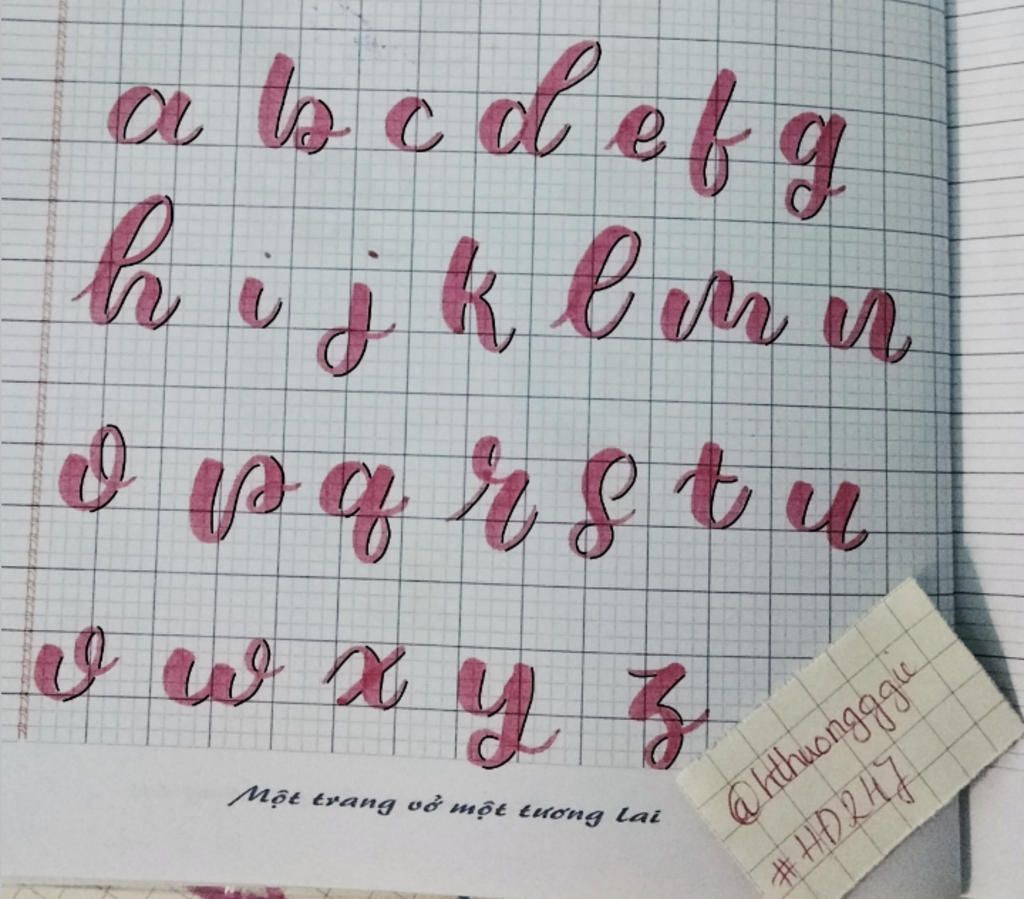 a b c d e f g
h i j k l m n
o p q r s t u
v w x y z
Một trang vở một tương lai
@hthuongggic
#HD247